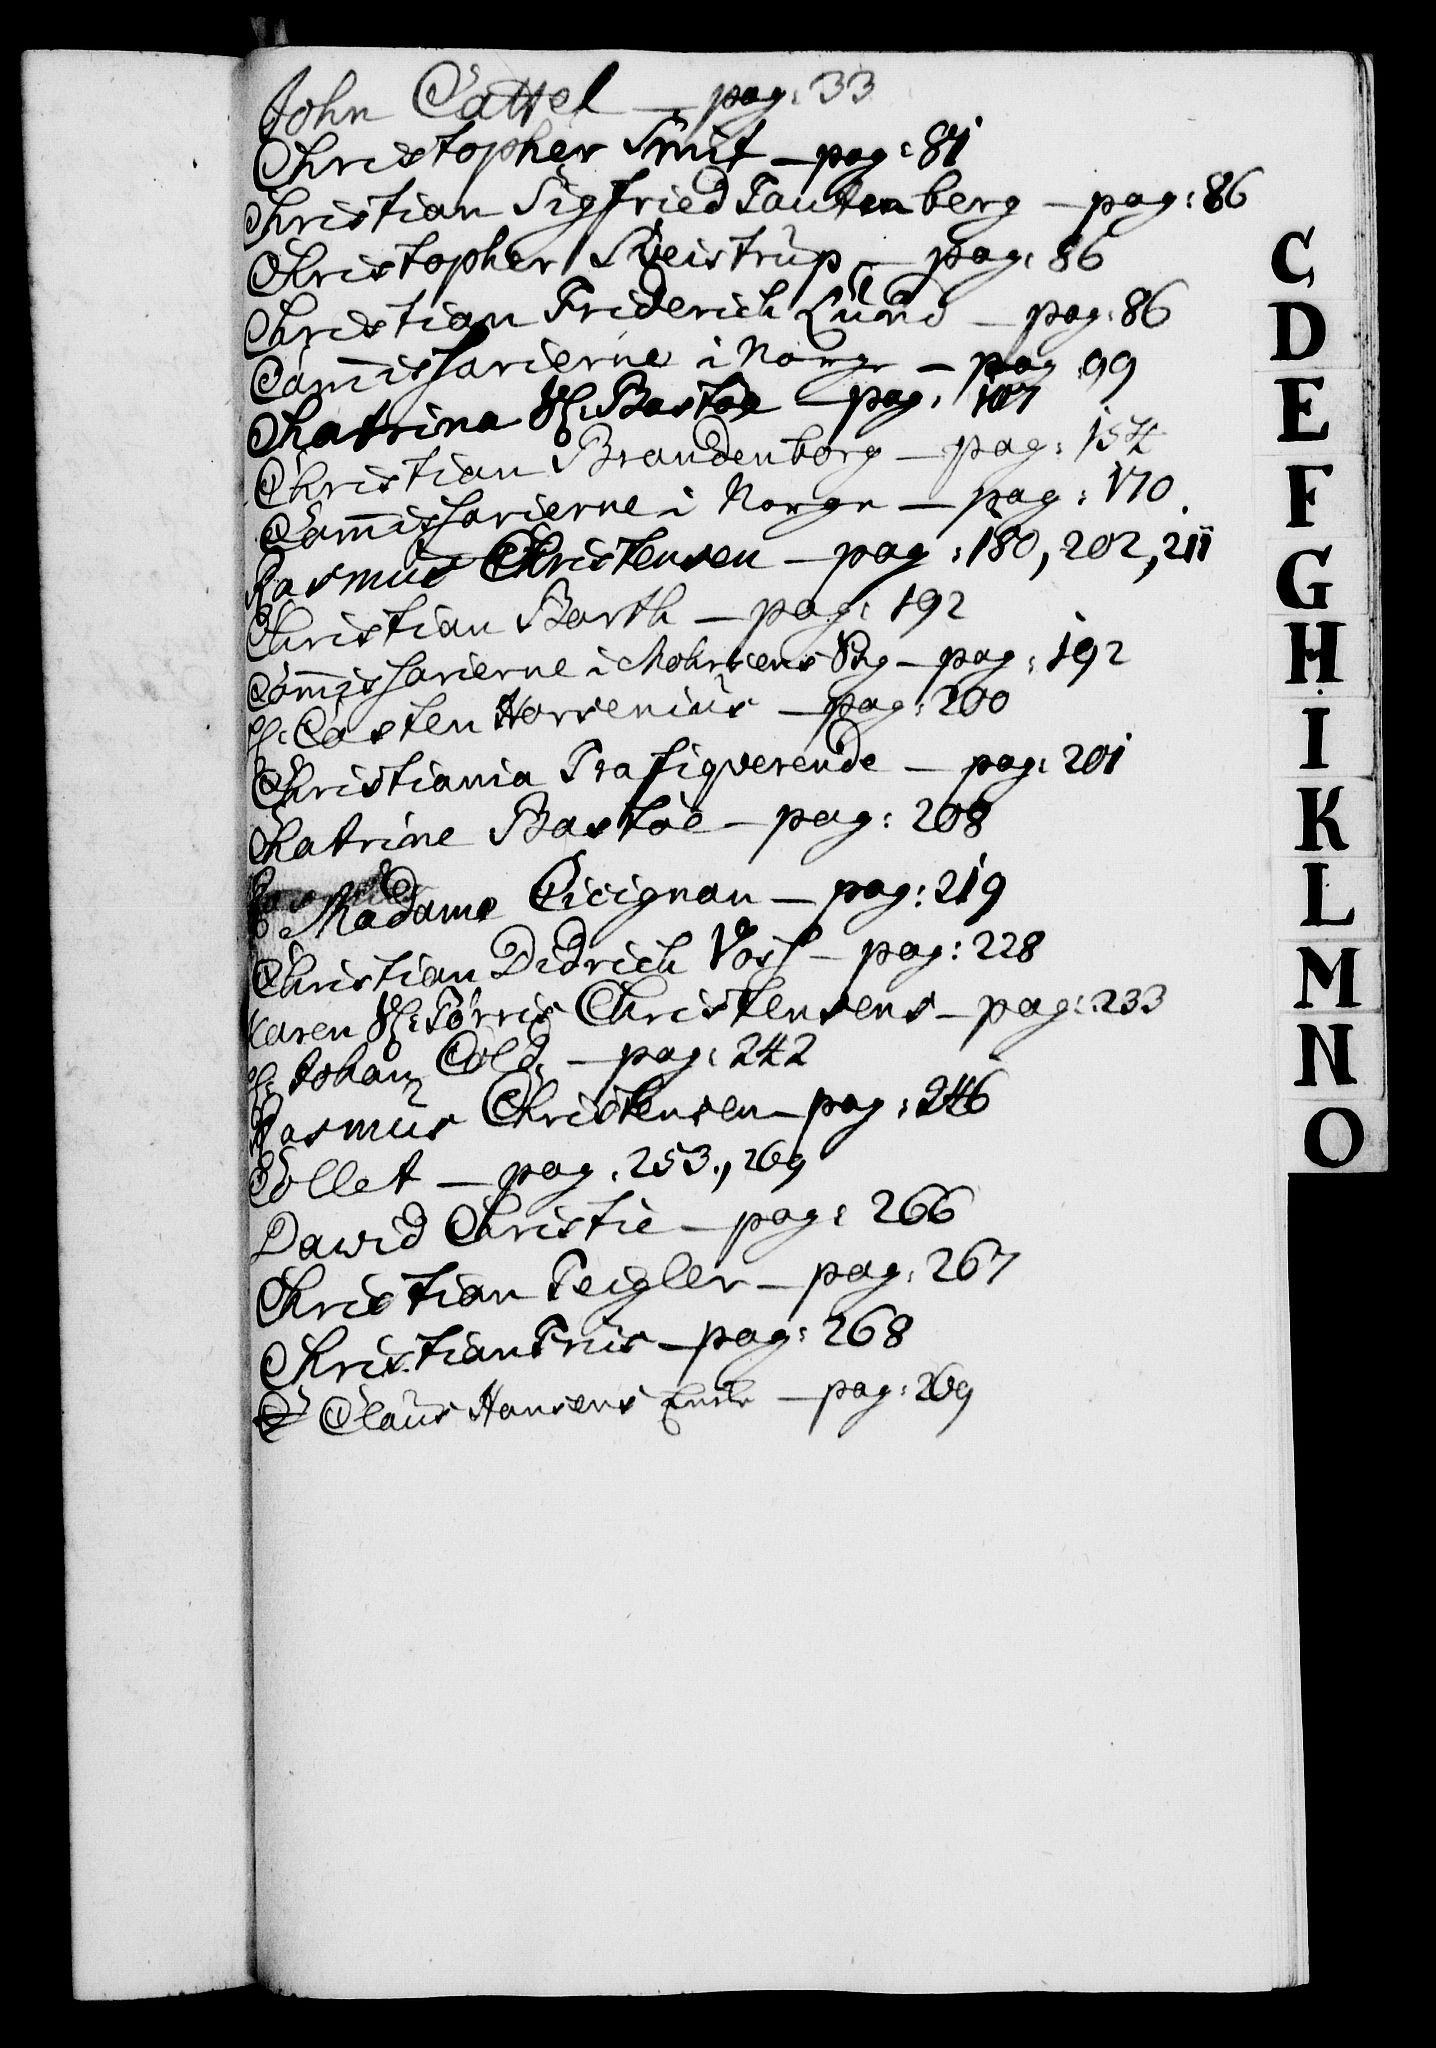 John Cattel – pag: 33
Christopher Smit – pag: 81
Christian Sigfried Tautenberg – pag: 86
Christopher Sveistrup – pag: 86
Christian Friderich Lund – pag: 86
Commissarierne i Norge – pag 99
Chatrina Bastøe – pag: 107
Christian Brandenborg – pag: 154
Commissarierne i Norge – pag: 170
Rasmus Christensen – pag: 180, 202, 211
Christian Barth – pag: 192
Commissarierne i Mohrsens – pag: 192
H: Casten Horrenius – pag: 200
Christiania Trafiqverende – pag: 201
Chatrine Bastøe – pag: 208
Madame Cicignon – pag: 219
Christian Didrich Voss – pag: 228
Karen Tørris Christensens – pag: 233
H: Johan Cold – pag: 242
Rasmus Christensen – pag: 246
Collet – pag: 253., 269
David Christie – pag: 266
Christian Teigler – pag: 267
Christian Friis – pag: 268
Claus Hansens Enke – pag: 269
C
D
E
F
G
H
I
K
L
M
N
O